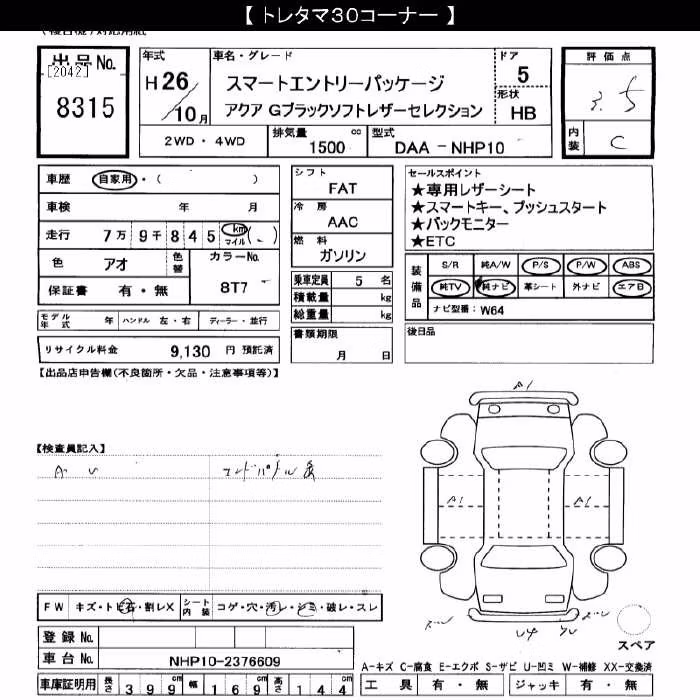 【 トレタマ30コーナー 】
出品No.
[2042]
8315
年式
H26/10月
車名・グレード
スマートエントリーパッケージ
アクア Gブラックソフトレザーセレクション
ドア
5
形状
HB
2WD ・ 4WD
排気量 1500 cc
型式 DAA - NHP10
評価点
3.5
内装
C
車歴 自家用・( )
車検 年 月
走行 7万9千845 km マイル(-)
色 アオ 色替 カラーNo. 8T7
保証書 有・無
シフト
FAT
冷房
AAC
燃料
ガソリン
乗車定員 5 名
積載量 kg
総重量 kg
セールスポイント
★専用レザーシート
★スマートキー、プッシュスタート
★バックモニター
★ETC
装備品
S/R 純A/W P/S P/W ABS
純TV 純ナビ 革シート 外ナビ エアB
ナビ型番：W64
モデル年式 年 ハンドル 左・右 ディーラー・並行
リサイクル料金 9,130 円 預託済
書類期限
月 日
後日品
【出品店申告欄(不良箇所・欠品・注意事項等)】
【検査員記入】
A U
エンドパネル
A1
A1 A1
FW キズ・トビ石・割レX シート内装 コゲ・穴・汚レ・シミ・破レ・スレ
登録 No.
車台 No. NHP10-2376609
車庫証明用 長さ 399cm 幅 169cm 高さ 144cm
スペア
A-キズ C-腐食 E-エクボ S-サビ U-凹ミ W-補修 XX-交換済
工具 有・無 ジャッキ 有・無